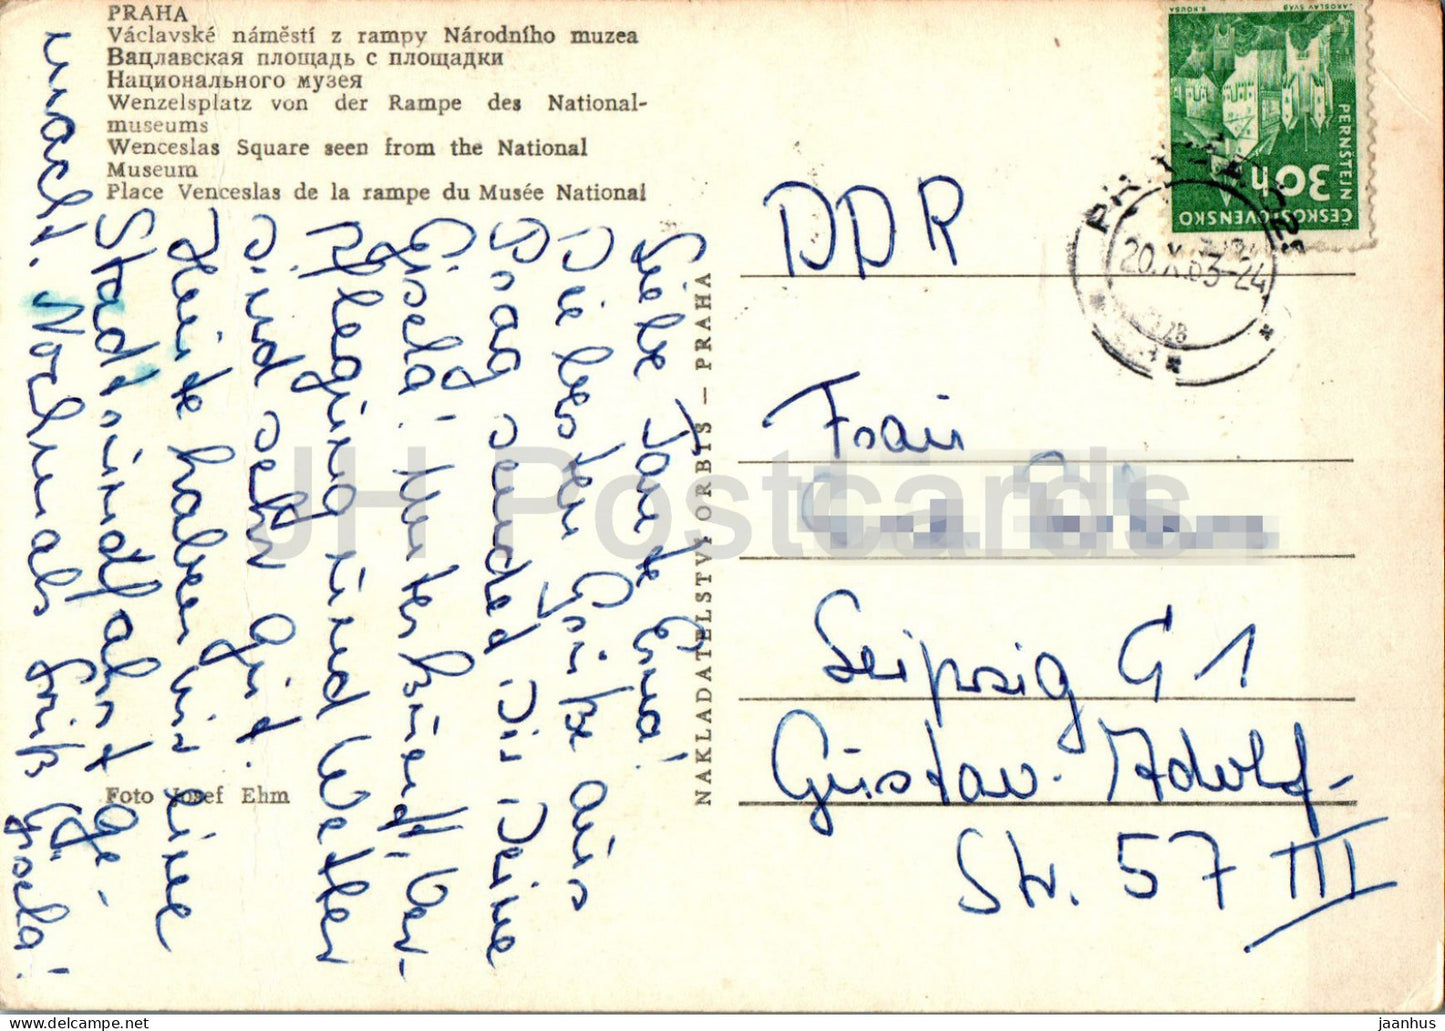 PRAHA
Václavské náměstí z rampy Národního muzea
Вацлавская площадь с площадки
Национального музея
Wenzelsplatz von der Rampe des National-
museums
Wenceslas Square seen from the National
Museum
Place Venceslas de la rampe du Musée National
Liebe Tante Erna!
Die besten Grüße aus
Prag sendet Dir Deine
Gisela! Unterkunft, Ver-
pflegung und Wetter
sind sehr gut.
Heute haben wir eine
Stadtrundfahrt ge-
macht. Nochmals Gruß Gisela!
Foto Josef Ehm
NAKLADATELSTVÍ ORBIS — PRAHA
B. HOUSA
JAROSLAV ŠVÁB
PERNŠTEJN
30h
ČESKOSLOVENSKO
PRAHA
20.X.63-24
DDR
Frau
Leipzig C 1
Gustav-Adolf-
Str. 57 III
JH Postcards
www.delcampe.net
jaanhus